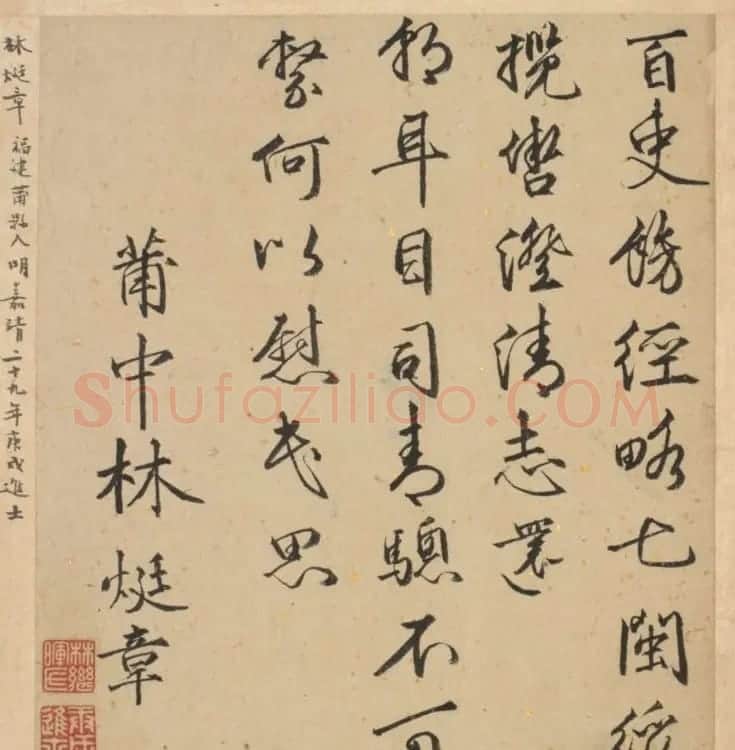 百吏餝經略七閩經
攬轡澄清志還
耳目司青驄不可
繄何以慰民思
莆中林烶章
林烶章 福建莆縣人 明嘉靖二十九年庚戌進士
Shufaziliao.COM